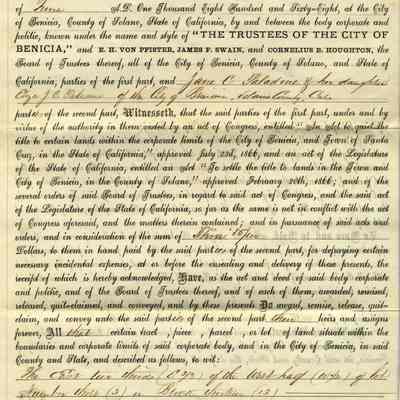 of June A.D. One Thousand Eight Hundred and Sixty-Eight, at the City
of Benicia, County of Solano, State of California, by and between the body corporate and
politic, known under the name and style of "THE TRUSTEES OF THE CITY OF
BENICIA," and E. H. VON PFISTER, JAMES F. SWAIN, and CORNELIUS B. HOUGHTON, the
Board of Trustees thereof, all of the City of Benicia, County of Solano, and State of
California, parties of the first part, and Jane C daughter
of the City of
parties of the second part, Witnesseth, that the said parties of the first part, under and by
virtue of the authority in them vested by an act of Congress, entitled "An act to quiet the
title to certain lands within the corporate limits of the City of Benicia, and Town of Santa
Cruz, in the State of California," approved July 23d, 1866; and an act of the Legislature
of the State of California, entitled an act "To settle the title to lands in the Town and
City of Benicia, in the County of Solano," approved February 20th, 1866; and of the
several orders of said Board of Trustees, in regard to said act of Congress, and the said act
of the Legislature of the State of California, so far as the same is not in conflict with the act
of Congress aforesaid, and the matters therein contained; and in pursuance of said acts and
orders, and in consideration of the sum of
Dollars, to them in hand paid by the said parties of the second part, for defraying certain
necessary incidental expenses, at or before the ensealing and delivery of these presents, the
receipt of which is hereby acknowledged, Have, as the act and deed of said body corporate
and politic, and of the Board of Trustees thereof, and of each of them, awarded, remised,
released, quit-claimed, and conveyed, and by these presents Do award, remise, release, quit-
claim, and convey unto the said parties of the second part, their heirs and assigns
forever, All that certain tract, piece, parcel, or lot, of land situate within the
boundaries and corporate limits of said corporate body, and in the City of Benicia, in said
County and State, and described as follows, to wit:
The East two thirds (E 2/3) of the West half (W 1/2) of lot
Number three (3) in Block (13)